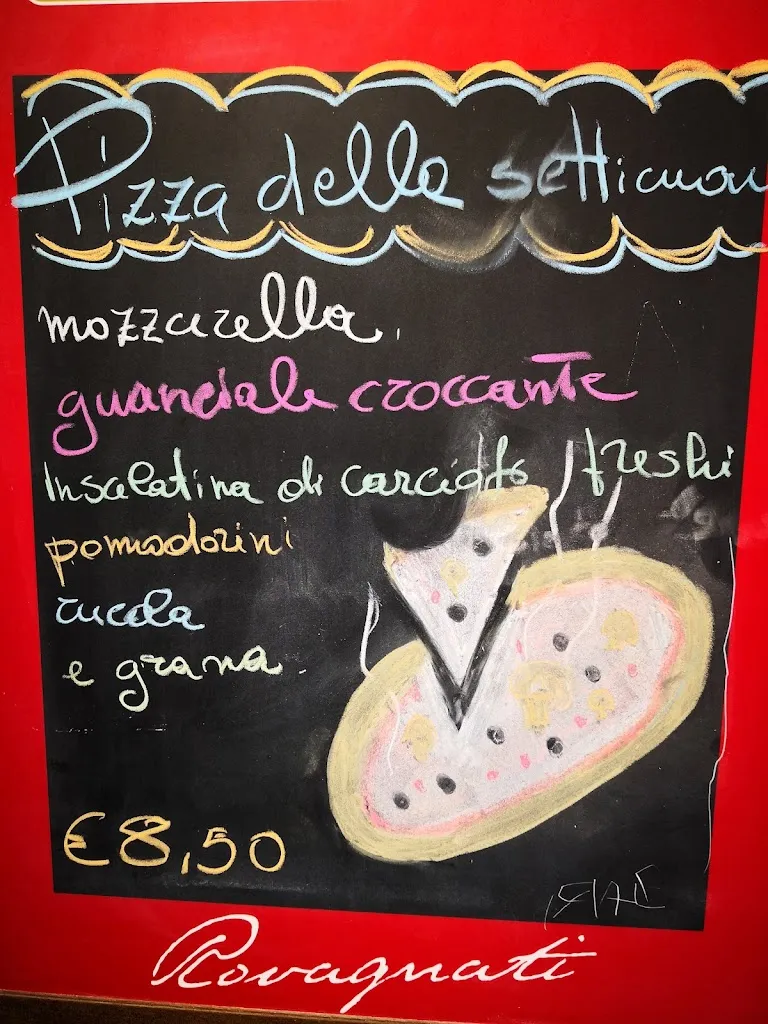 Pizza della settiman
mozzarella,
guanciale croccante
Insalatina di carciofo freshi
pomodorini
rucola
e grana.
€8,50
Rovagnati